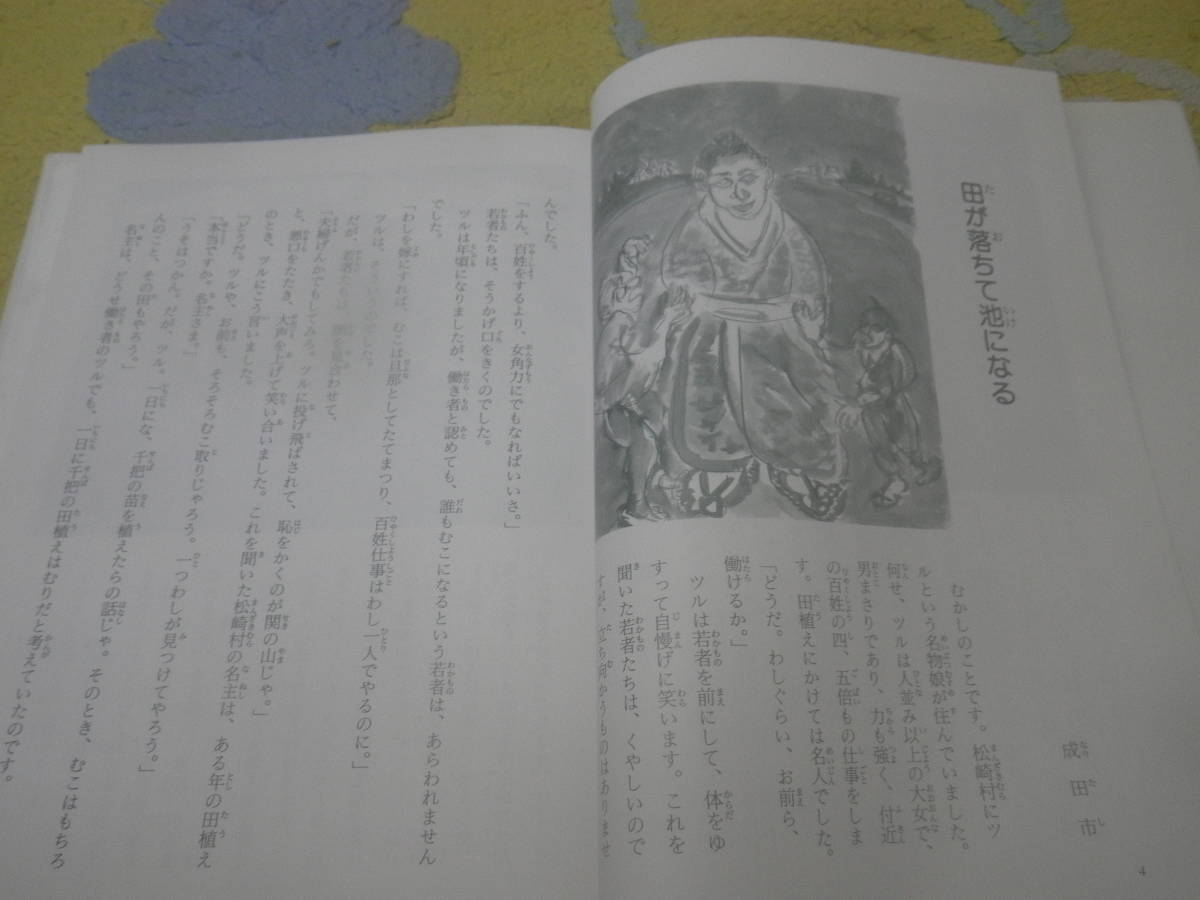 田が落ちて池になる
成田市
むかしのことです。松崎村にツ
ルという名物娘が住んでいました。
何せ、ツルは人並み以上の大女で、
男まさりであり、力も強く、付近
の百姓の四、五倍もの仕事をしま
す。田植えにかけては名人でした。
「どうだ。わしぐらい、お前ら、
働けるか。」
ツルは若者を前にして、体をゆ
すって自慢げに笑います。これを
聞いた若者たちは、くやしいので
すが、立ち向かうものはありませ
4
んでした。
「ふん、百姓をするより、女角力にでもなればいいさ。」
若者たちは、そうかげ口をきくのでした。
ツルは年頃になりましたが、働き者と認めても、誰もむこになるという若者は、あらわれません
でした。
「わしを嫁にすれば、むこは旦那としてたてまつり、百姓仕事はわし一人でやるのに。」
ツルは、そういうのでした。
だが、若者たちは、顔を見合わせて、
「夫婦げんかでもしてみろ。ツルに投げ飛ばされて、恥をかくのが関の山じゃ。」
と、悪口をたたき、大声を上げて笑い合いました。これを聞いた松崎村の名主は、ある年の田植え
のとき、ツルにこう言いました。
「どうだ。ツルや、お前も、そろそろむこ取りじゃろう。一つわしが見つけてやろう。」
「本当ですか。名主さま。」
「うそはつかん。だが、ツル。一日にな、千把の苗を植えたらの話じゃ。そのとき、むこはもちろ
んのこと、その田もやろう。」
名主は、どうせ働き者のツルでも、一日に千把の田植えはむりだと考えていたのです。